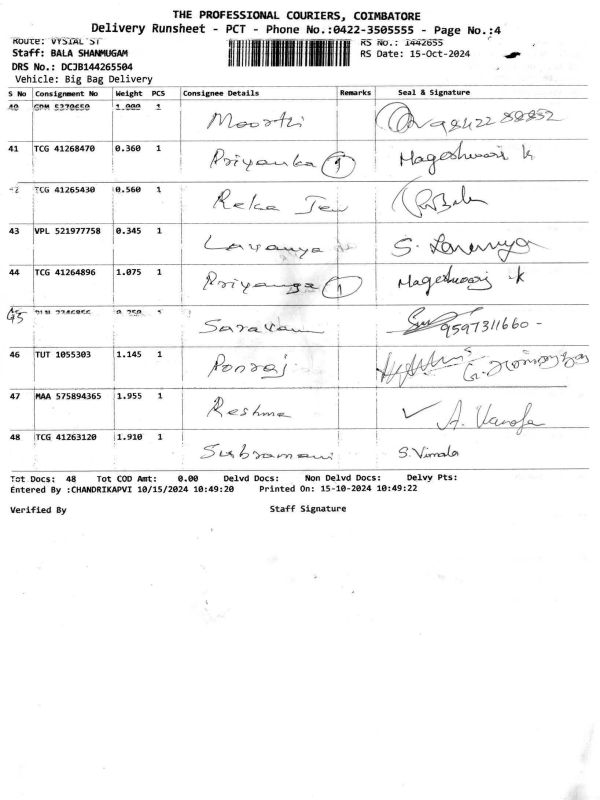 THE PROFESSIONAL COURIERS, COIMBATORE
Delivery Runsheet - PCT - Phone No.:0422-3505555 - Page No.:4
Route: VYSIAL ST
RS No.: 1442655
Staff: BALA SHANMUGAM
RS Date: 15-Oct-2024
DRS No.: DCJB144265504
Vehicle: Big Bag Delivery
S No Consignment No Weight PCS Consignee Details Remarks Seal & Signature
40 1.000 1 Moorthi
41 TCG 41268470 0.360 1 Priyanka 1 Mageshwari K
42 TCG 41265430 0.560 1 Reka
43 VPL 521977758 0.345 1 Lavanya S. Lavanya
44 TCG 41264896 1.075 1 Priyanga 1 Mageshwari K
45 1 Saravan 9597311660 -
46 TUT 1055303 1.145 1 Ponraj
47 MAA 575894365 1.955 1 Reshma ✓ A.
48 TCG 41263120 1.910 1 Subramani S. Vimala
Tot Docs: 48 Tot COD Amt: 0.00 Delvd Docs: Non Delvd Docs: Delvy Pts:
Entered By :CHANDRIKAPVI 10/15/2024 10:49:20 Printed On: 15-10-2024 10:49:22
Verified By Staff Signature